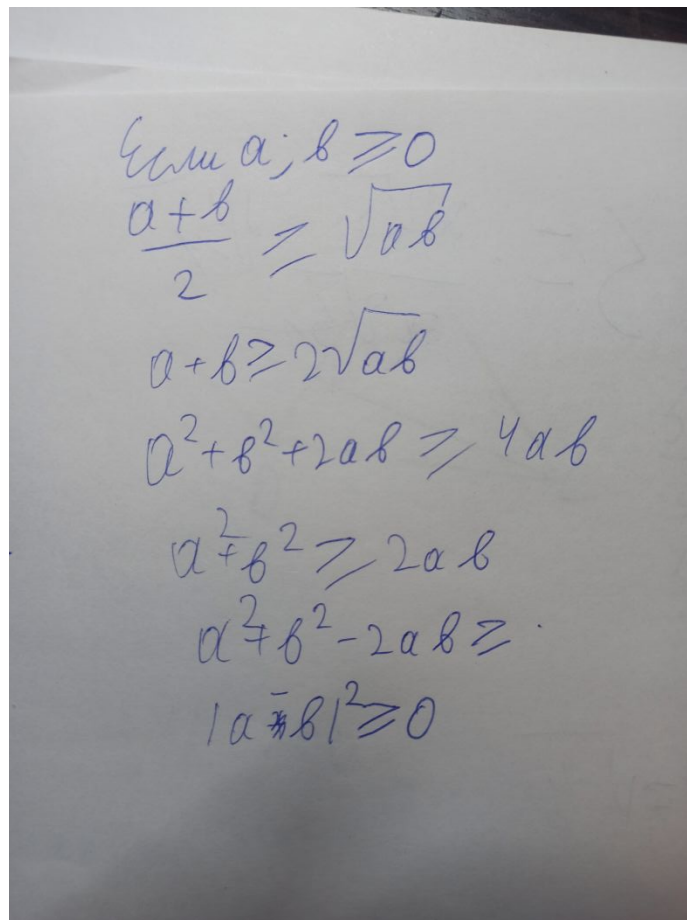 Если a; b ≥ 0
(a+b)/2 ≥ √ab
a+b ≥ 2√ab
a²+b²+2ab ≥ 4ab
a²+b² ≥ 2ab
a²+b²-2ab ≥ .
|a-b|² ≥ 0